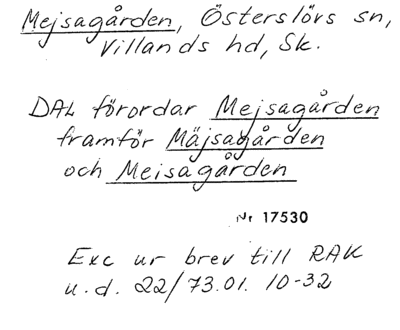 Mejsagården, Österslövs sn,
Villands hd, Sk.
DAL förordar Mejsagården
framför Mäjsagården
och Meisagården
Nr 17530
Exc ur brev till RAK
u.d. 22/73.01. 10-32